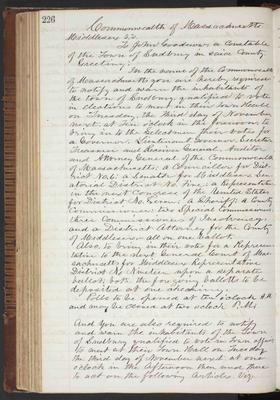 226
Commonwealth of Massachusetts
Middlesex S.S.
To John Goodnow a Constable
of the Town of Sudbury in said County
Greeting:
In the name of the Commonwealth
of Massachusetts you are hereby required
to notify and warn the inhabitants of
the town of Sudbury qualified to vote
in elections to meet in their Town House
on Tuesday, the third day of November
next, at ten o'clock in the forenoon to
bring in to the Selectmen their votes for
a Governor, Lieutenant Governor, Secretary
Treasurer and Receiver General, Auditor
and Attorney General of the Commonwealth
of Massachusetts, a Councillor for Dist-
rict No. a Senator for Middlesex Sen-
atorial District No. Five, a Representative
in the next Congress of the United States
for District No. Seven; a Sheriff; a County
Commissioner; two Special Commissioners,
three Commissioners of Insolvency,
and a District Attorney, for the County
of Middlesex all on one ballot.
Also, to bring in their votes for a Represen-
tative to the next General Court of Mas-
sachusetts for Middlesex Representative
District No Nineteen upon a separate
ballot; both the foregoing ballots to be
deposited at one balloting.
Polls to be opened at ten o'clock A.M.
and may be closed at two o'clock P.M.
And you are also required to notify
and warn the inhabitants of the Town
of Sudbury qualified to vote in town affairs
to meet at their Town Hall on Tuesday
the third day of November next at one
o'clock in the afternoon then and there
to act on the following Articles. Viz.